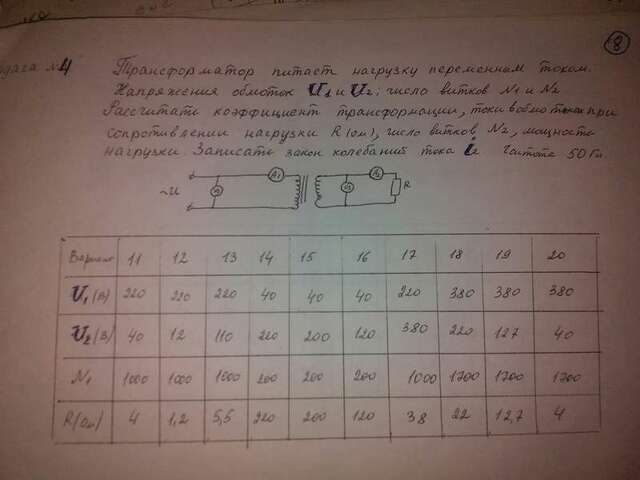 8
Задача №4
Трансформатор питает нагрузку переменным током.
Напряжения обмоток U1 и U2; число витков N1 и N2
Рассчитать коэффициент трансформации, токи в обмотках при
сопротивлении нагрузки R (Ом), число витков N2, мощность
нагрузки. Записать закон колебаний тока i2 Частота 50 Гц.
~U V1 A1 V2 A2 R
Вариант 11 12 13 14 15 16 17 18 19 20
U1 (В) 220 220 220 40 40 40 220 380 380 380
U2 (В) 40 12 110 220 200 120 380 220 127 40
N1 1000 1000 1000 200 200 200 1000 1700 1700 1700
R(Ом) 4 1,2 5,5 220 200 120 38 22 12,7 4